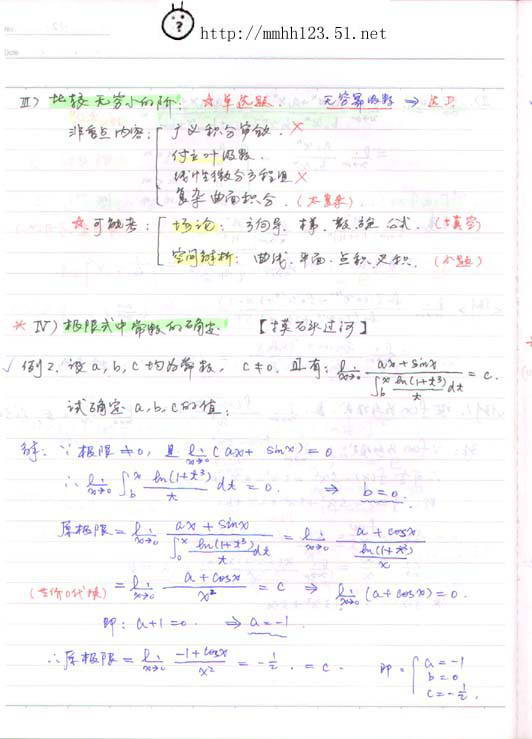 No.
Date
http://mmhh123.51.net
III) 比较无穷小的阶: ☆单选题. 无穷幂函数 ⇒
非重点内容: 广义积分审敛. ×
付立叶级数.
线性微分方程组 ×
复杂曲面积分. (太复杂)
☆ 可能考: 场论: 方向导. 梯. 散. 旋 公式. (填空)
空间解析: 曲线. 平面. 点积. 叉积. (小题)
* IV) 极限式中常数的确定. 【摸石头过河】
√ 例2. 设 a, b, c 均为常数, c≠0. 且有: lim x→0 (ax+sinx)/(∫_b^x ln(1+t³)/t dt) = c.
试确定 a, b, c 的值:
解: ∵ 极限 ≠0, 且 lim x→0 (ax+ sinx) = 0
∴ lim x→0 ∫_b^x ln(1+t³)/t dt = 0. ⇒ b=0.
原极限 = lim x→0 (ax+sinx)/(∫_0^x ln(1+t³)/t dt) = lim x→0 (a+cosx)/(ln(1+x³)/x)
(等价代换) = lim x→0 (a+cosx)/x² = c ⇒ lim x→0 (a+cosx) = 0.
即: a+1=0. ⇒ a=-1
∴ 原极限 = lim x→0 (-1+cosx)/x² = -1/2. = c. 即: { a=-1
b=0
c=-1/2.